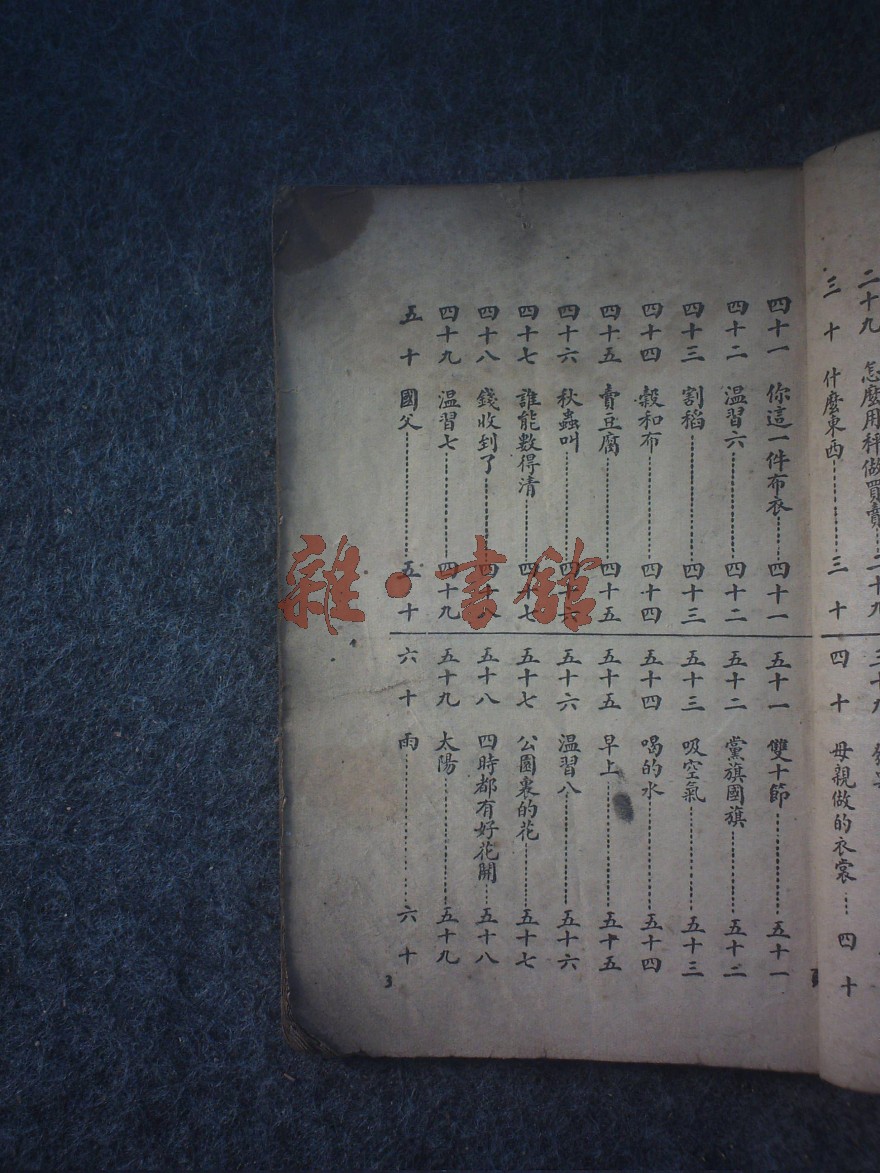 二十九 怎麼用秤做買賣……二十九
三十 什麼東西……三十
四十 母親做的衣裳……四十
四十一 你這一件布衣……四十一
四十二 溫習六……四十二
四十三 割稻……四十三
四十四 穀和布……四十四
四十五 賣豆腐……四十五
四十六 秋蟲叫……四十六
四十七 誰能數得清……四十七
四十八 錢收到了……四十八
四十九 溫習七……四十九
五十 國父……五十
五十一 雙十節……五十一
五十二 黨旗國旗……五十二
五十三 吸空氣……五十三
五十四 喝的水……五十四
五十五 早上……五十五
五十六 溫習八……五十六
五十七 公園裏的花……五十七
五十八 四時都有好花開……五十八
五十九 太陽……五十九
六十 雨……六十
3
雜·書館